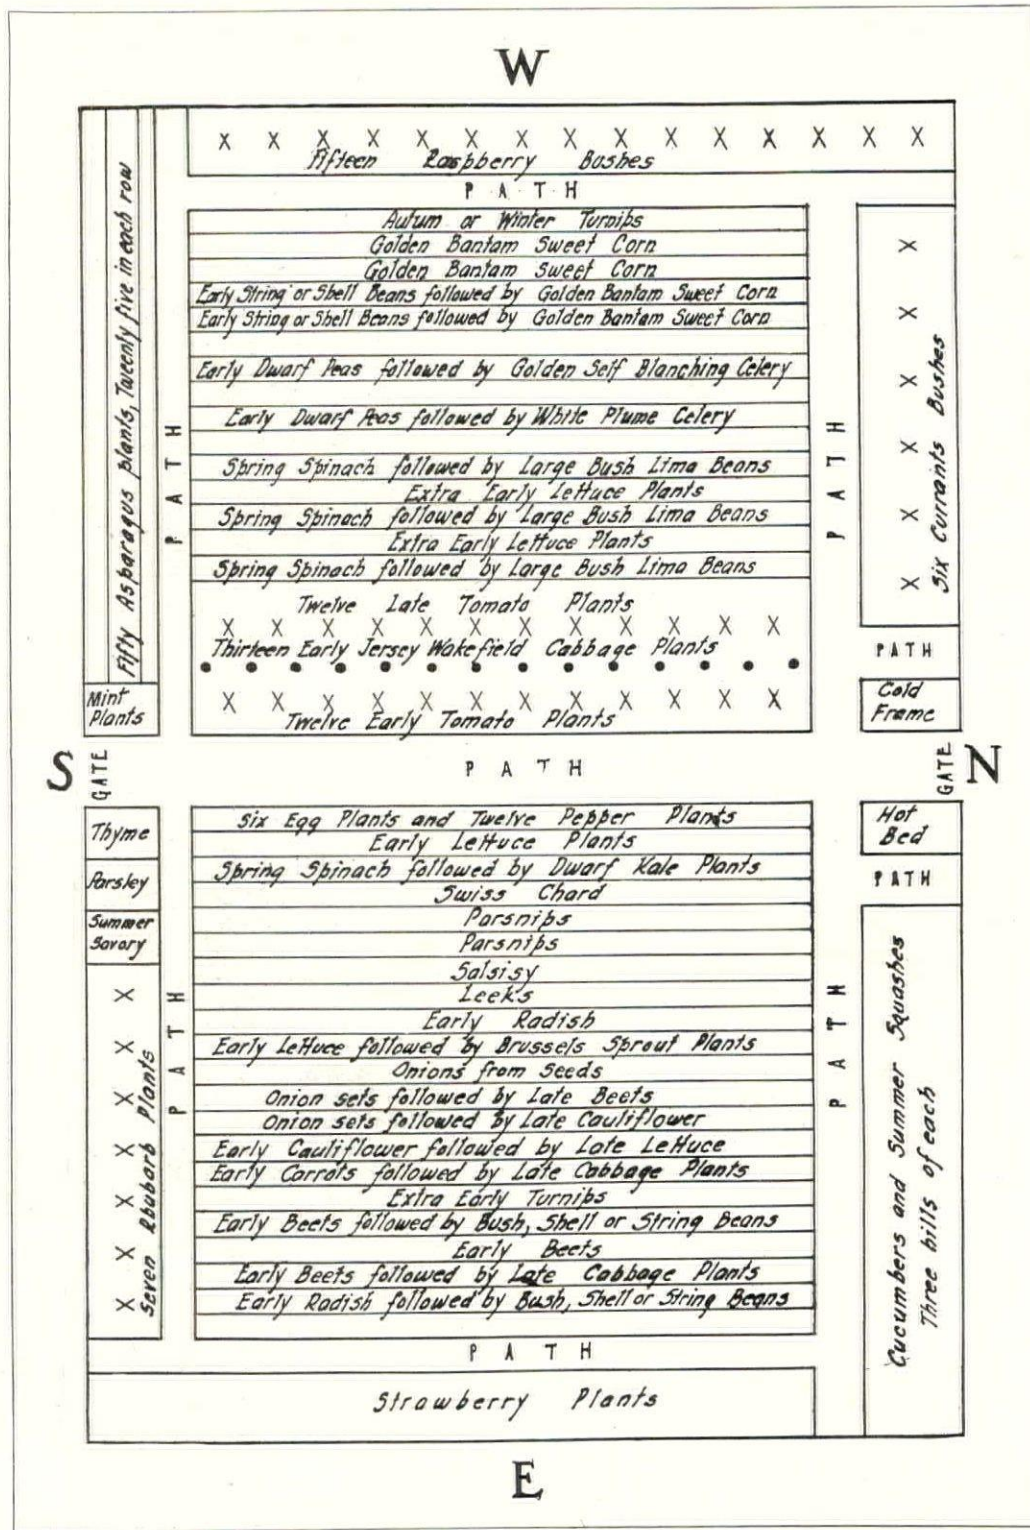 W
Fifteen Raspberry Bushes
PATH
Fifty Asparagus plants, Tweenly five in each row
PATH
Mint
Plants
Autum or Winter Turnips
Golden Bantam Sweet Corn
Golden Bantam Sweet Corn
Early String or Shell Beans followed by Golden Bantam Sweet Corn
Early String or Shell Beans followed by Golden Bantam Sweet Corn
Early Dwarf Peas followed by Golden Self Blanching Celery
Early Dwarf Peas followed by White Plume Celery
Spring Spinach followed by Large Bush Lima Beans
Extra Early Lettuce Plants
Spring Spinach followed by Large Bush Lima Beans
Extra Early Lettuce Plants
Spring Spinach followed by Large Bush Lima Beans
Twelve Late Tomato Plants
Thirteen Early Jersey Wakefield Cabbage Plants
Twelve Early Tomato Plants
PATH
Six Currants Bushes
PATH
Cold
Frame
S
GATE
PATH
GATE
N
Thyme
Parsley
Summer
Savory
PATH
Seven Rhubarb Plants
Six Egg Plants and Twelve Pepper Plants
Early Lettuce Plants
Spring Spinach followed by Dwarf Kale Plants
Swiss Chard
Parsnips
Parsnips
Salsisy
Leeks
Early Radish
Early Lettuce followed by Brussels Sprout Plants
Onions from Seeds
Onion sets followed by Late Beets
Onion sets followed by Late Cauliflower
Early Cauliflower followed by Late Lettuce
Early Carrots followed by Late Cabbage Plants
Extra Early Turnips
Early Beets followed by Bush, Shell or String Beans
Early Beets
Early Beets followed by Late Cabbage Plants
Early Radish followed by Bush, Shell or String Beans
Hot
Bed
PATH
PATH
Cucumbers and Summer Squashes
Three hills of each
PATH
Strawberry Plants
E